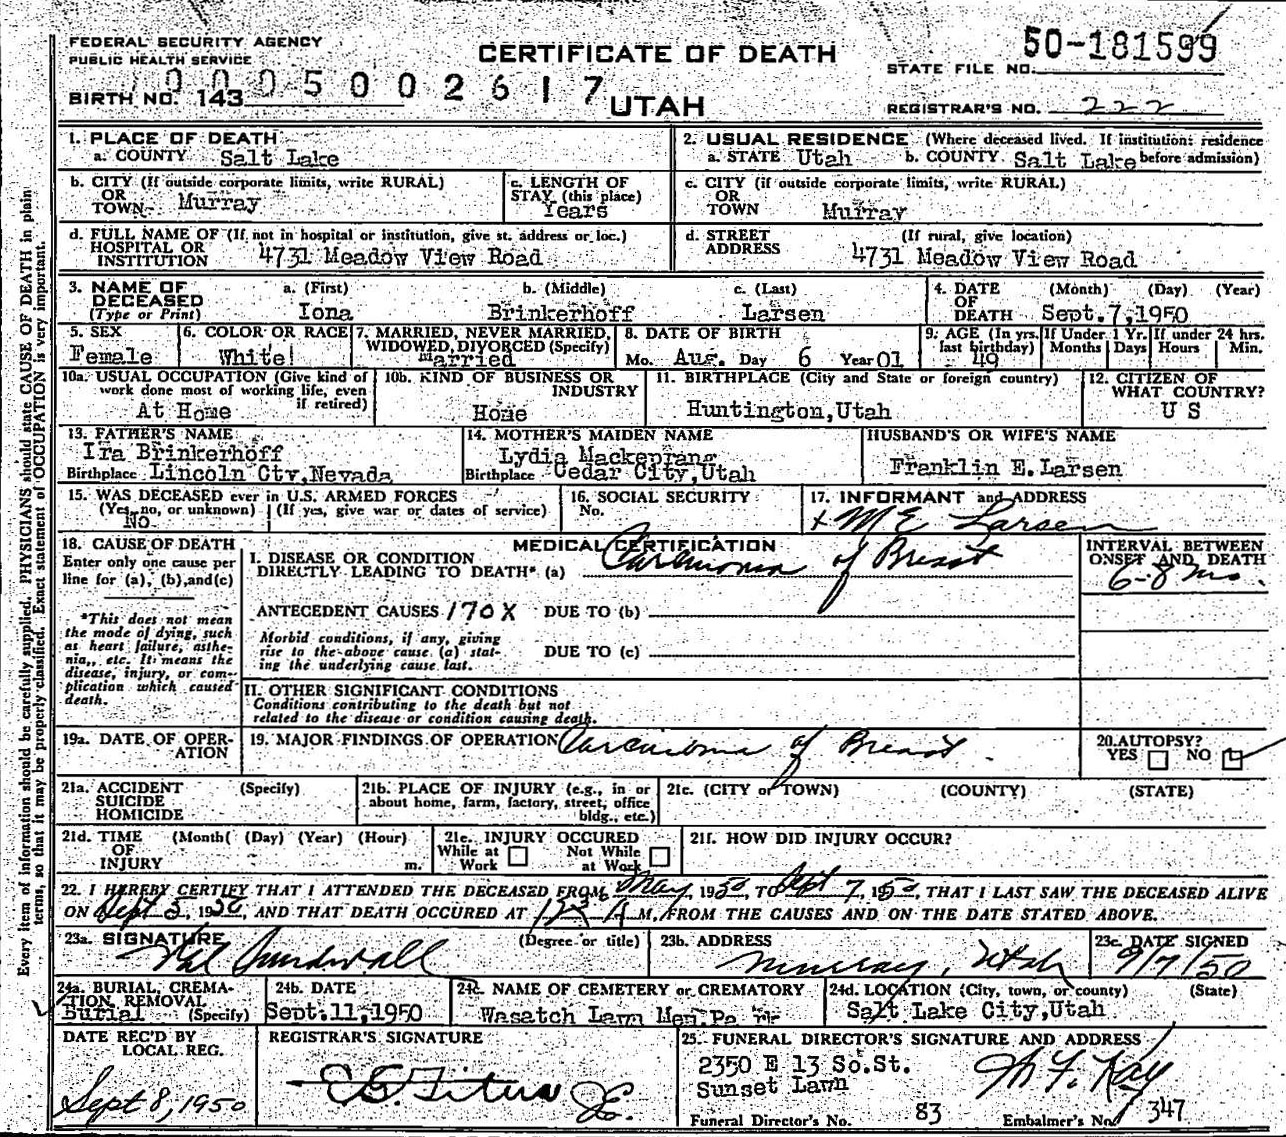 FEDERAL SECURITY AGENCY
PUBLIC HEALTH SERVICE
CERTIFICATE OF DEATH
UTAH
50-181599
STATE FILE NO.
BIRTH NO. 143
0005002617
REGISTRAR'S NO. 222
Every item of information should be carefully supplied. PHYSICIANS should state CAUSE OF DEATH in plain
terms, so that it may be properly classified. Exact statement of OCCUPATION is very important.
1. PLACE OF DEATH
a. COUNTY Salt Lake
2. USUAL RESIDENCE (Where deceased lived. If institution: residence
a. STATE Utah b. COUNTY Salt Lake before admission)
b. CITY (If outside corporate limits, write RURAL)
OR
TOWN Murray
c. LENGTH OF
STAY (this place)
Years
c. CITY (if outside corporate limits, write RURAL)
OR
TOWN Murray
d. FULL NAME OF (If not in hospital or institution, give st. address or loc.)
HOSPITAL OR
INSTITUTION 4731 Meadow View Road
d. STREET (If rural, give location)
ADDRESS 4731 Meadow View Road
3. NAME OF
DECEASED
(Type or Print)
a. (First) b. (Middle) c. (Last)
Iona Brinkerhoff Larsen
4. DATE (Month) (Day) (Year)
OF
DEATH Sept. 7,1950
5. SEX
Female
6. COLOR OR RACE
White
7. MARRIED, NEVER MARRIED,
WIDOWED, DIVORCED (Specify)
married
8. DATE OF BIRTH
Mo. Aug. Day 6 Year 01
9. AGE (In yrs.
last birthday)
49
If Under 1 Yr.
Months Days
If under 24 hrs.
Hours Min.
10a. USUAL OCCUPATION (Give kind of
work done most of working life, even
if retired)
At Home
10b. KIND OF BUSINESS OR
INDUSTRY
Home
11. BIRTHPLACE (City and State or foreign country)
Huntington,Utah
12. CITIZEN OF
WHAT COUNTRY?
U S
13. FATHER'S NAME
Ira Brinkerhoff
Birthplace Lincoln Cty,Nevada
14. MOTHER'S MAIDEN NAME
Lydia Mackeprang
Birthplace Cedar City,Utah
HUSBAND'S OR WIFE'S NAME
Franklin E.Larsen
15. WAS DECEASED ever in U.S. ARMED FORCES
(Yes, no, or unknown) (If yes, give war or dates of service)
No
16. SOCIAL SECURITY
No.
17. INFORMANT and ADDRESS
x M E Larsen
18. CAUSE OF DEATH
Enter only one cause per
line for (a), (b),and(c)
*This does not mean
the mode of dying, such
as heart failure, asthe-
nia,, etc. It means the
disease, injury, or com-
plication which caused
death.
MEDICAL CERTIFICATION
I. DISEASE OR CONDITION
DIRECTLY LEADING TO DEATH* (a) Carcinoma of Breast
INTERVAL BETWEEN
ONSET AND DEATH
6-8 mo.
ANTECEDENT CAUSES 170X DUE TO (b)
Morbid conditions, if any, giving
rise to the above cause (a) stat-
ing the underlying cause last.
DUE TO (c)
II. OTHER SIGNIFICANT CONDITIONS
Conditions contributing to the death but not
related to the disease or condition causing death.
19a. DATE OF OPER-
ATION
19. MAJOR FINDINGS OF OPERATION Carcinoma of Breast
20. AUTOPSY?
YES NO
21a. ACCIDENT (Specify)
SUICIDE
HOMICIDE
21b. PLACE OF INJURY (e.g., in or
about home, farm, factory, street, office
bldg., etc.)
21c. (CITY or TOWN) (COUNTY) (STATE)
21d. TIME (Month) (Day) (Year) (Hour)
OF
INJURY m.
21e. INJURY OCCURED
While at Work Not While at Work
21f. HOW DID INJURY OCCUR?
22. I HEREBY CERTIFY THAT I ATTENDED THE DECEASED FROM May, 1950, TO Sept 7, 1950, THAT I LAST SAW THE DECEASED ALIVE
ON Sept 5, 1950, AND THAT DEATH OCCURED AT A M, FROM THE CAUSES AND ON THE DATE STATED ABOVE.
23a. SIGNATURE (Degree or title)
Val Sundwall
23b. ADDRESS
Murray, Utah
23c. DATE SIGNED
9/7/50
24a. BURIAL, CREMA-
TION REMOVAL
Burial (Specify)
24b. DATE
Sept.11,1950
24c. NAME OF CEMETERY or CREMATORY
Wasatch Lawn Mem.Pa rk
24d. LOCATION (City, town, or county) (State)
Salt Lake City,Utah
DATE REC'D BY
LOCAL REG.
Sept 8, 1950
REGISTRAR'S SIGNATURE
E.G. Titus
25. FUNERAL DIRECTOR'S SIGNATURE AND ADDRESS
2350 E 13 So.St.
Sunset Lawn
Funeral Director's No. 83 Embalmer's No. 347